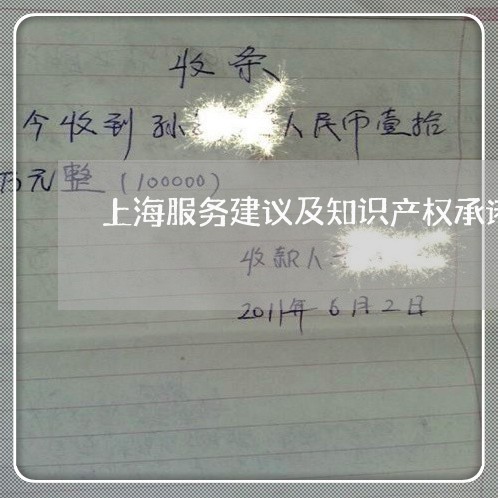 收条
今收到孙人民币壹拾
万元整(100000)
上海服务建议及知识产权承
收款人
2011年6月2日